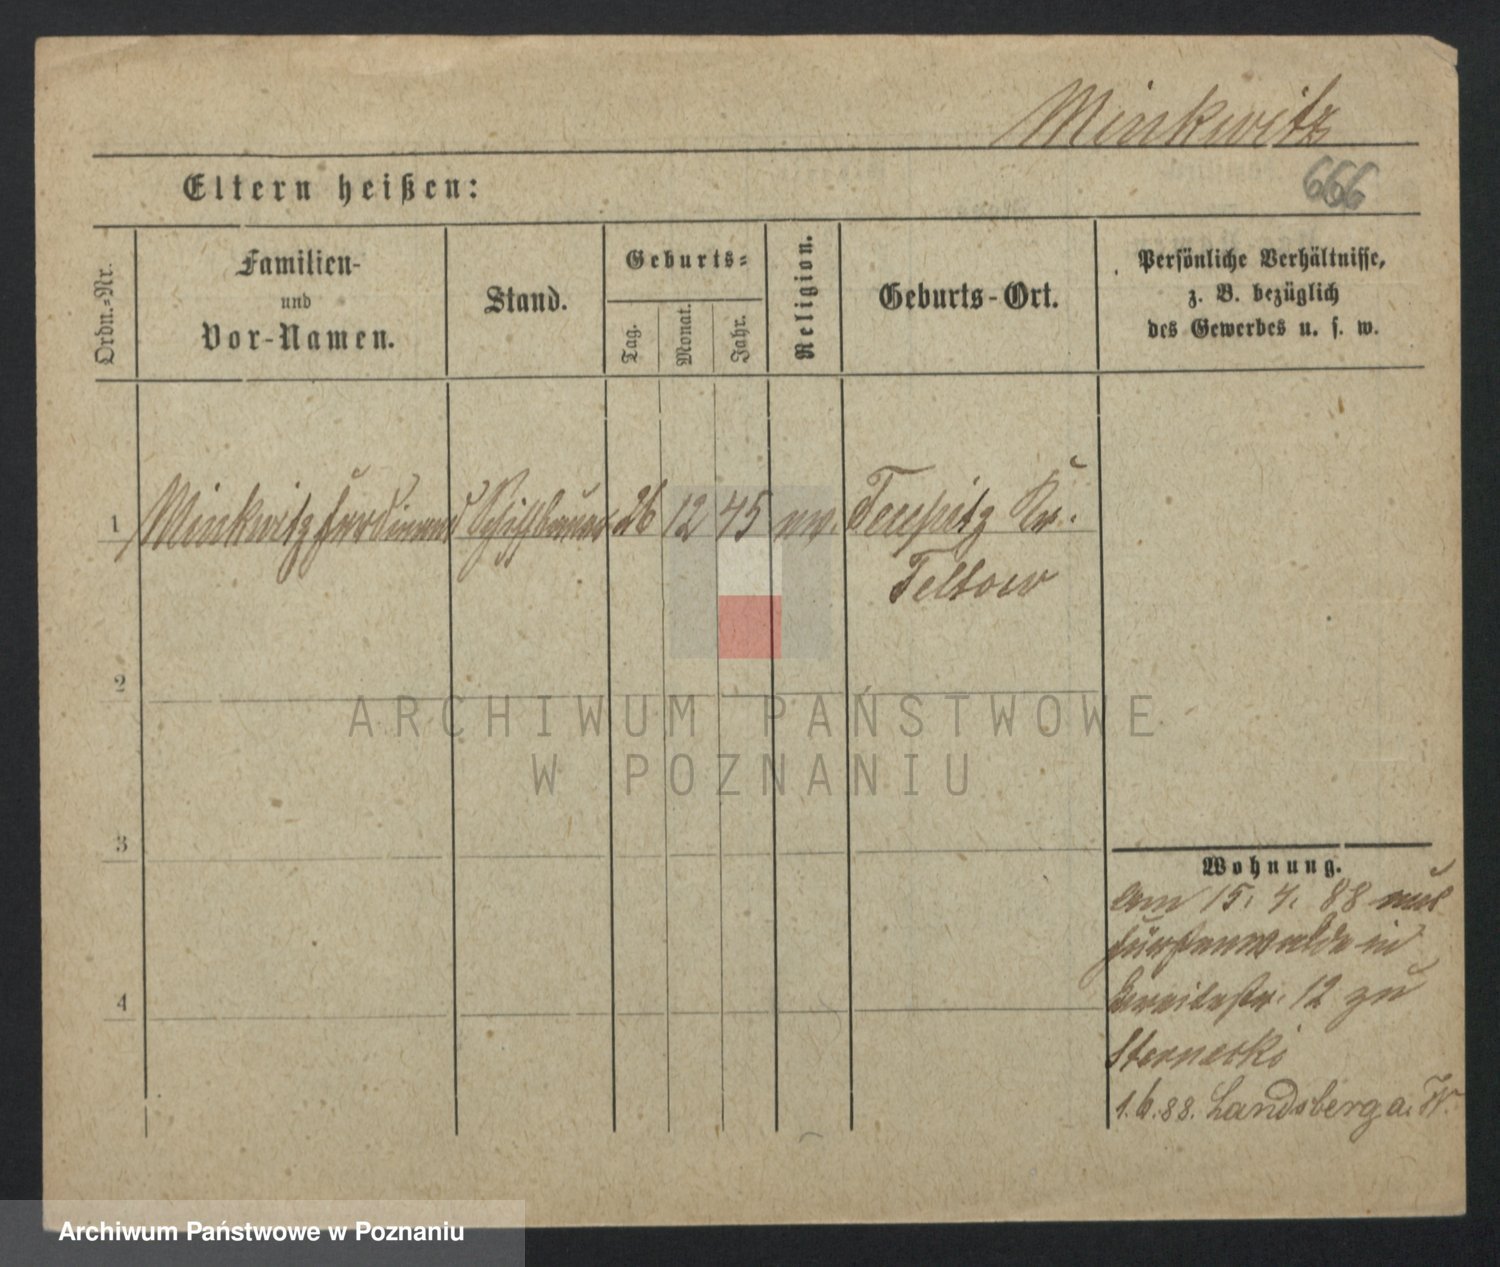 Minkwitz
Eltern heißen:
666
Ordn.-Nr.
Familien-
und
Vor-Namen.
Stand.
Geburts-
Tag.
Monat.
Jahr.
Religion.
Geburts-Ort.
Persönliche Verhältnisse,
z. B. bezüglich
des Gewerbes u. s. w.
1 Minkwitz Ferdinand Schiffbauer 26 12 45 ev. Teupitz Kr.
Teltow
2
ARCHIWUM PAŃSTWOWE
W POZNANIU
3
Wohnung.
am 15. 4. 88 aus
Fürstenwalde in
Breitestr. 12 zu
Sternetki
4
1.6.88. Landsberg a. W.
Archiwum Państwowe w Poznaniu